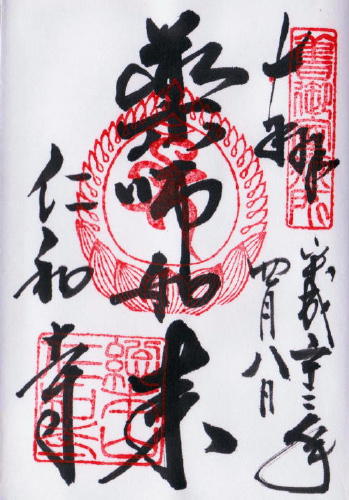 奉拝
平成二十三年
四月八日
薬師如来
仁和寺